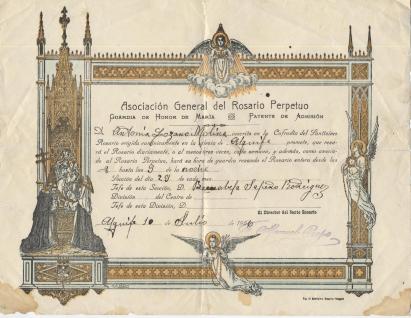 Asociación General del Rosario Perpetuo
GUARDIA DE HONOR DE MARÍA PATENTE DE ADMISIÓN
D. Antonia Lozano Molina inscrita en la Cofradía del Santísimo
Rosario erigida canónicamente en la iglesia de Alquife promete, que reza-
rá el Rosario diariamente, o al menos tres veces, cada semana, y además, como asocia-
do al Rosario Perpetuo, hará su hora de guardia rezando el Rosario entero desde las
hasta las 9 de la noche
Sección del día 29 de cada mes.
Jefe de esta Sección, D.
División del Centro de
Jefe de esta División, D.
Alquife 10 de Julio de
El Director del Santo Rosario